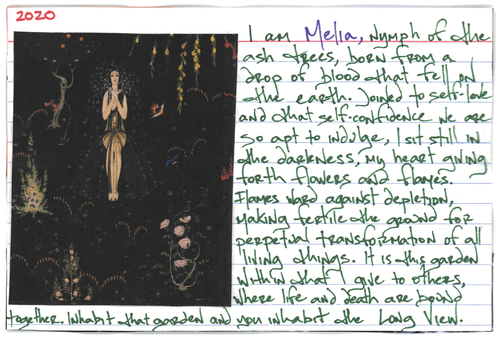 2020
I am Melia, nymph of the
ash trees, born from a
drop of blood that fell on
the earth. Joined to self-love
and that self-confidence we are
so apt to indulge, I sit still in
the darkness, my heart giving
forth flowers and flames.
Flames ward against depletion,
making fertile the ground for
perpetual transformation of all
living things. It is this garden
within that I give to others,
where life and death are bound
together. Inhabit that garden and you inhabit the Long View.